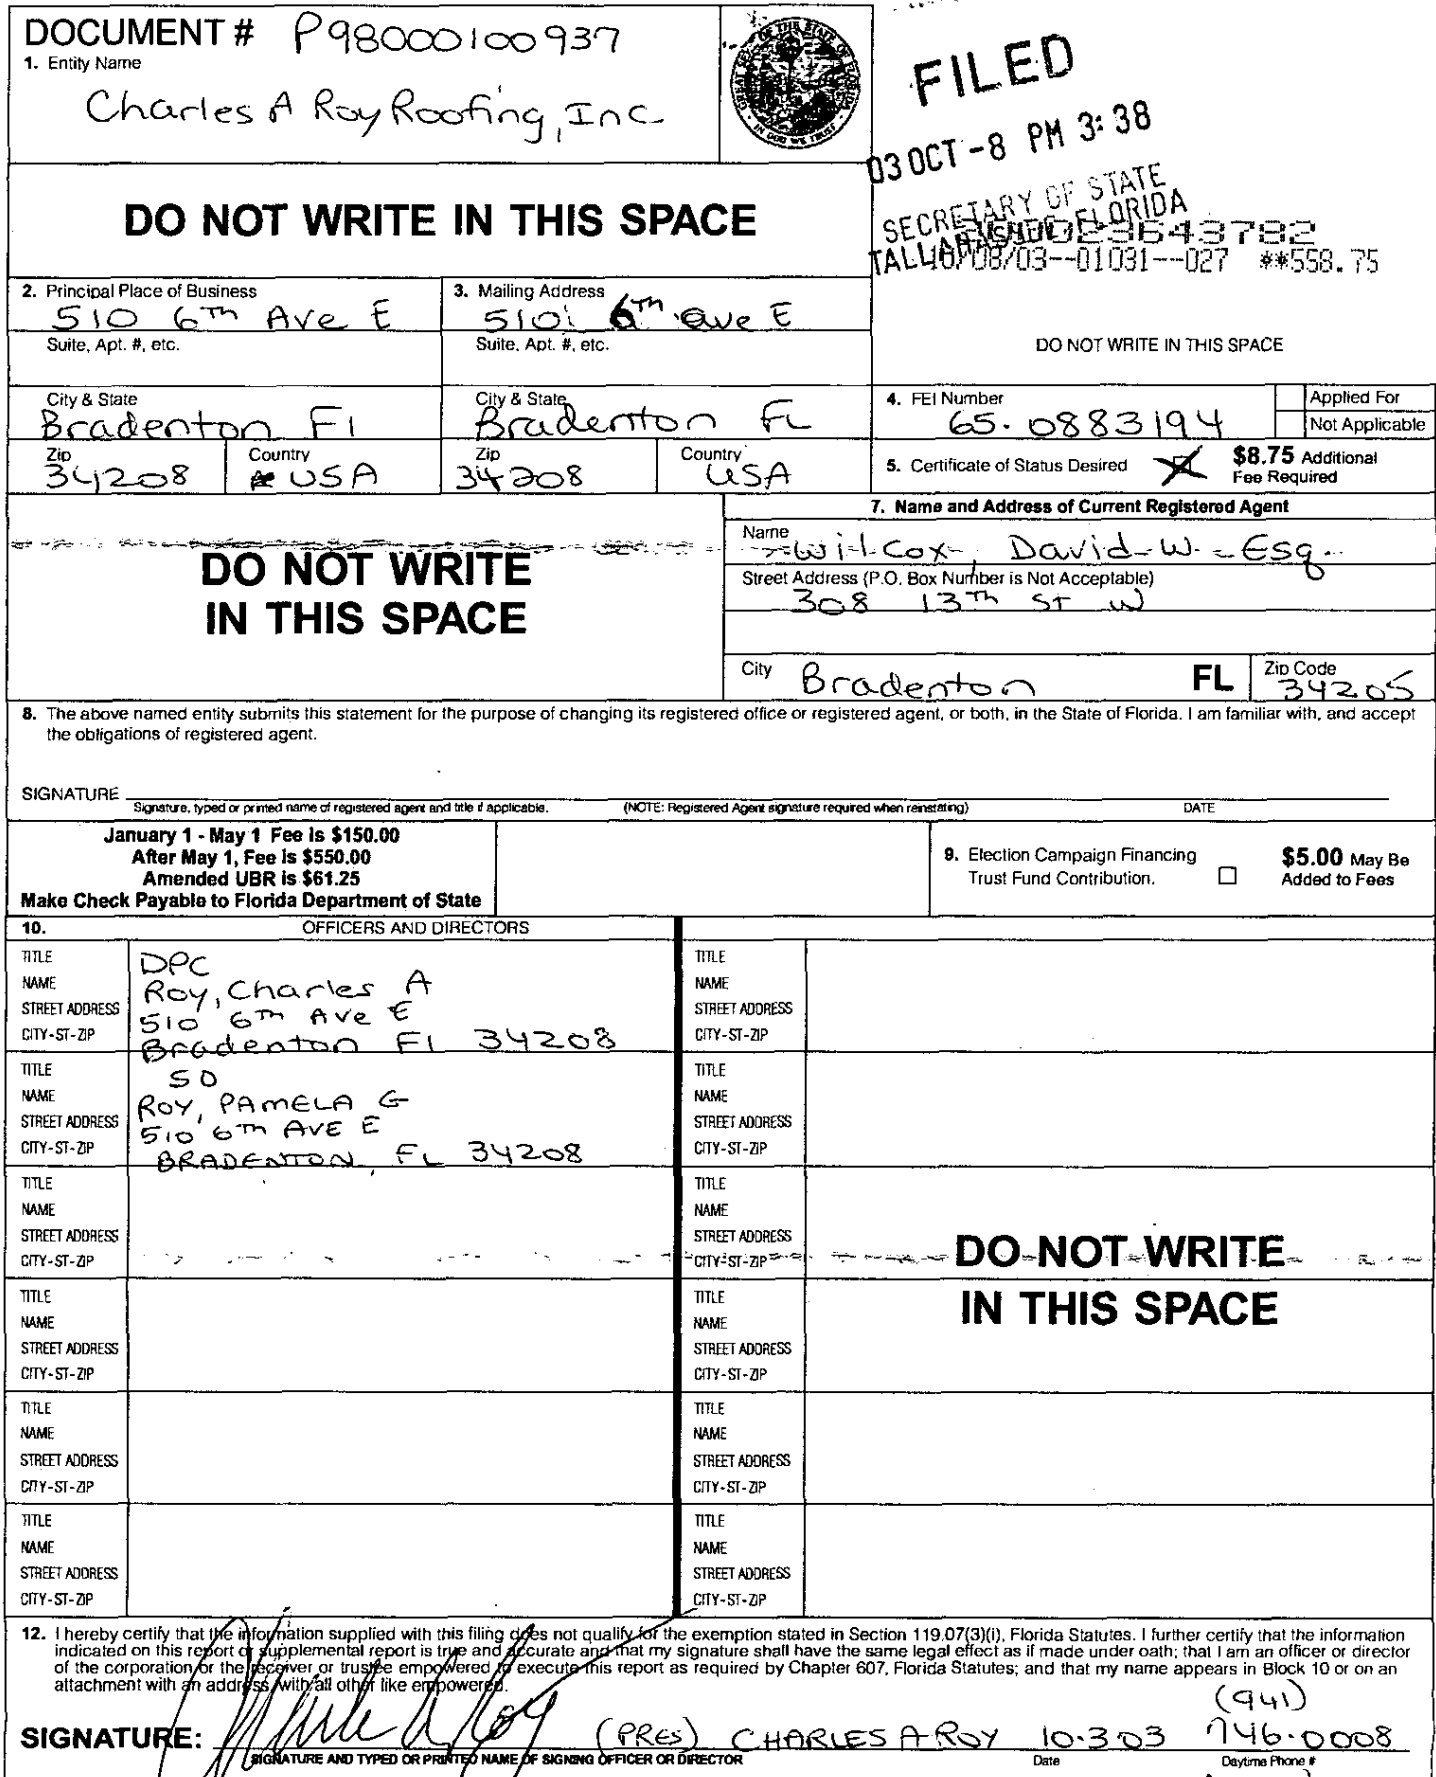 DOCUMENT # P98000100937
1. Entity Name
Charles A Roy Roofing, Inc
FILED
03 OCT -8 PM 3:38
SECRETARY OF STATE
TALLAHASSEE, FLORIDA
10/08/03--01031--027 **558.75
DO NOT WRITE IN THIS SPACE
2. Principal Place of Business
510 6th Ave E
3. Mailing Address
510 6th ave E
Suite, Apt. #, etc.
Suite, Apt. #, etc.
DO NOT WRITE IN THIS SPACE
City & State
Bradenton Fl
City & State
Bradenton FL
4. FEI Number
65-0883194
Applied For
Not Applicable
Zip
34208
Country
USA
Zip
34208
Country
USA
5. Certificate of Status Desired
$8.75 Additional
Fee Required
DO NOT WRITE
IN THIS SPACE
7. Name and Address of Current Registered Agent
Name
Wilcox, David W. Esq.
Street Address (P.O. Box Number is Not Acceptable)
308 13th St W
City Bradenton FL
Zip Code
34205
8. The above named entity submits this statement for the purpose of changing its registered office or registered agent, or both, in the State of Florida. I am familiar with, and accept
the obligations of registered agent.
SIGNATURE
Signature, typed or printed name of registered agent and title if applicable. (NOTE: Registered Agent signature required when reinstating) DATE
January 1 - May 1 Fee is $150.00
After May 1, Fee is $550.00
Amended UBR is $61.25
Make Check Payable to Florida Department of State
9. Election Campaign Financing
Trust Fund Contribution.
$5.00 May Be
Added to Fees
10. OFFICERS AND DIRECTORS
TITLE DPC
NAME Roy, Charles A
STREET ADDRESS 510 6th Ave E
CITY-ST-ZIP Bradenton Fl 34208
TITLE
NAME
STREET ADDRESS
CITY-ST-ZIP
TITLE SD
NAME ROY, PAMELA G
STREET ADDRESS 510 6th AVE E
CITY-ST-ZIP BRADENTON, FL 34208
TITLE
NAME
STREET ADDRESS
CITY-ST-ZIP
TITLE
NAME
STREET ADDRESS
CITY-ST-ZIP
TITLE
NAME
STREET ADDRESS
CITY-ST-ZIP
DO NOT WRITE
IN THIS SPACE
TITLE
NAME
STREET ADDRESS
CITY-ST-ZIP
TITLE
NAME
STREET ADDRESS
CITY-ST-ZIP
TITLE
NAME
STREET ADDRESS
CITY-ST-ZIP
TITLE
NAME
STREET ADDRESS
CITY-ST-ZIP
TITLE
NAME
STREET ADDRESS
CITY-ST-ZIP
TITLE
NAME
STREET ADDRESS
CITY-ST-ZIP
12. I hereby certify that the information supplied with this filing does not qualify for the exemption stated in Section 119.07(3)(i), Florida Statutes. I further certify that the information
indicated on this report or supplemental report is true and accurate and that my signature shall have the same legal effect as if made under oath; that I am an officer or director
of the corporation or the receiver or trustee empowered to execute this report as required by Chapter 607, Florida Statutes; and that my name appears in Block 10 or on an
attachment with an address, with all other like empowered.
(941)
SIGNATURE: (PRES) CHARLES A ROY 10-3-03 746-0008
SIGNATURE AND TYPED OR PRINTED NAME OF SIGNING OFFICER OR DIRECTOR Date Daytime Phone #